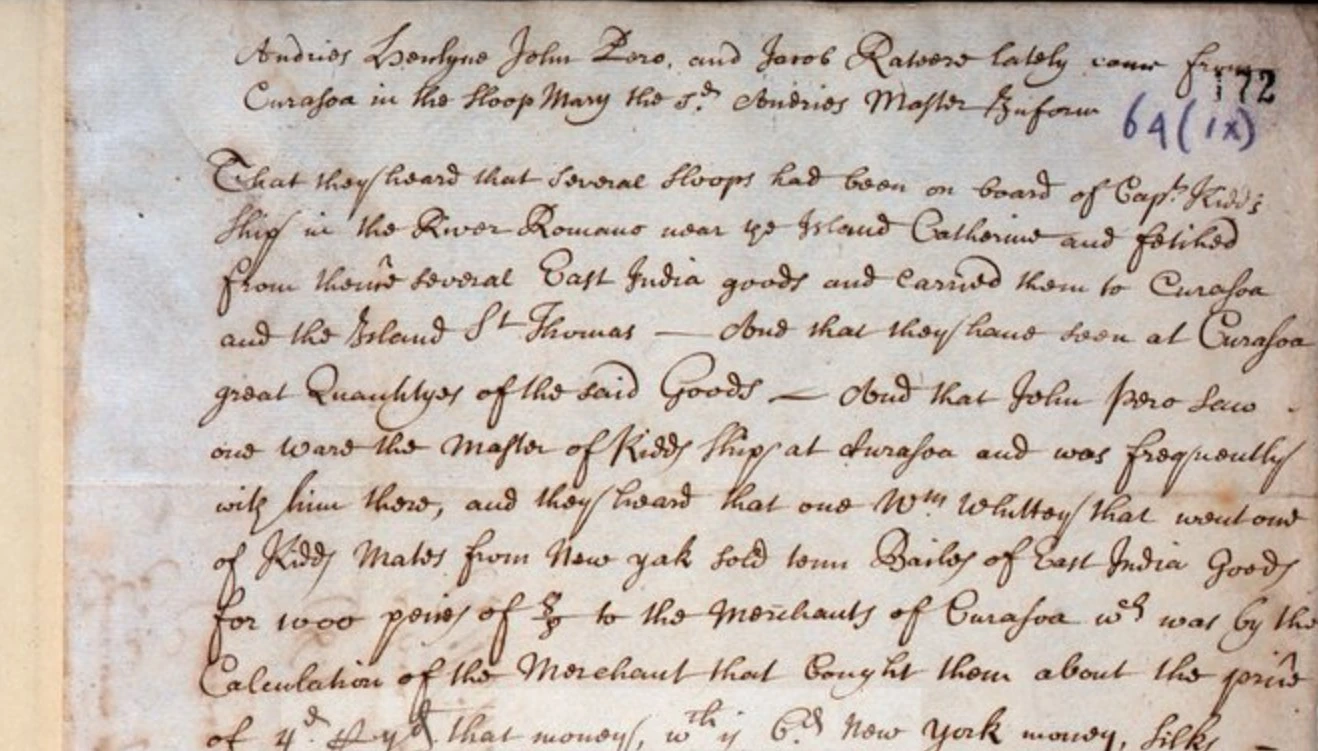 Andries Henlyne John Pero, and Jacob Rateere lately come from
172
Curasoa in the Sloop Mary the sd. Andries Master Inform
64 (ix)
That they heard that several sloops had been on board of Capt. Kidds
Ship in the River Romano near ye Island Catherine and fetched
from thence several East India goods and carried them to Curasoa
and the Island St Thomas — And that they have seen at Curasoa
great Quantityes of the said Goods — And that John Pero saw
one Ware the Master of Kidds Ship at Curasoa and was frequently
with him there, and they heard that one Wm. Whittey that went one
of Kidds Mates from New yak sold tenn Bailes of East India Goods
for 1000 peices of 8/8 to the Merchants of Curasoa wch was by the
Calculation of the Merchant that bought them about the price
of 4d. yd that money, wth is 6d New York money, silks